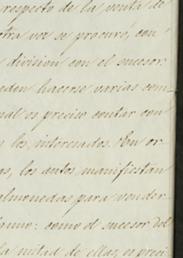 respecto de la venta de
otra vez se procuró, con
division con el sucesor:
eden hacerse varias com
ual es preciso contar con
los interesados. En or
as, los autos manifiestan
almonedas para vender
como el sucesor del
la mitad de ellas, es preci